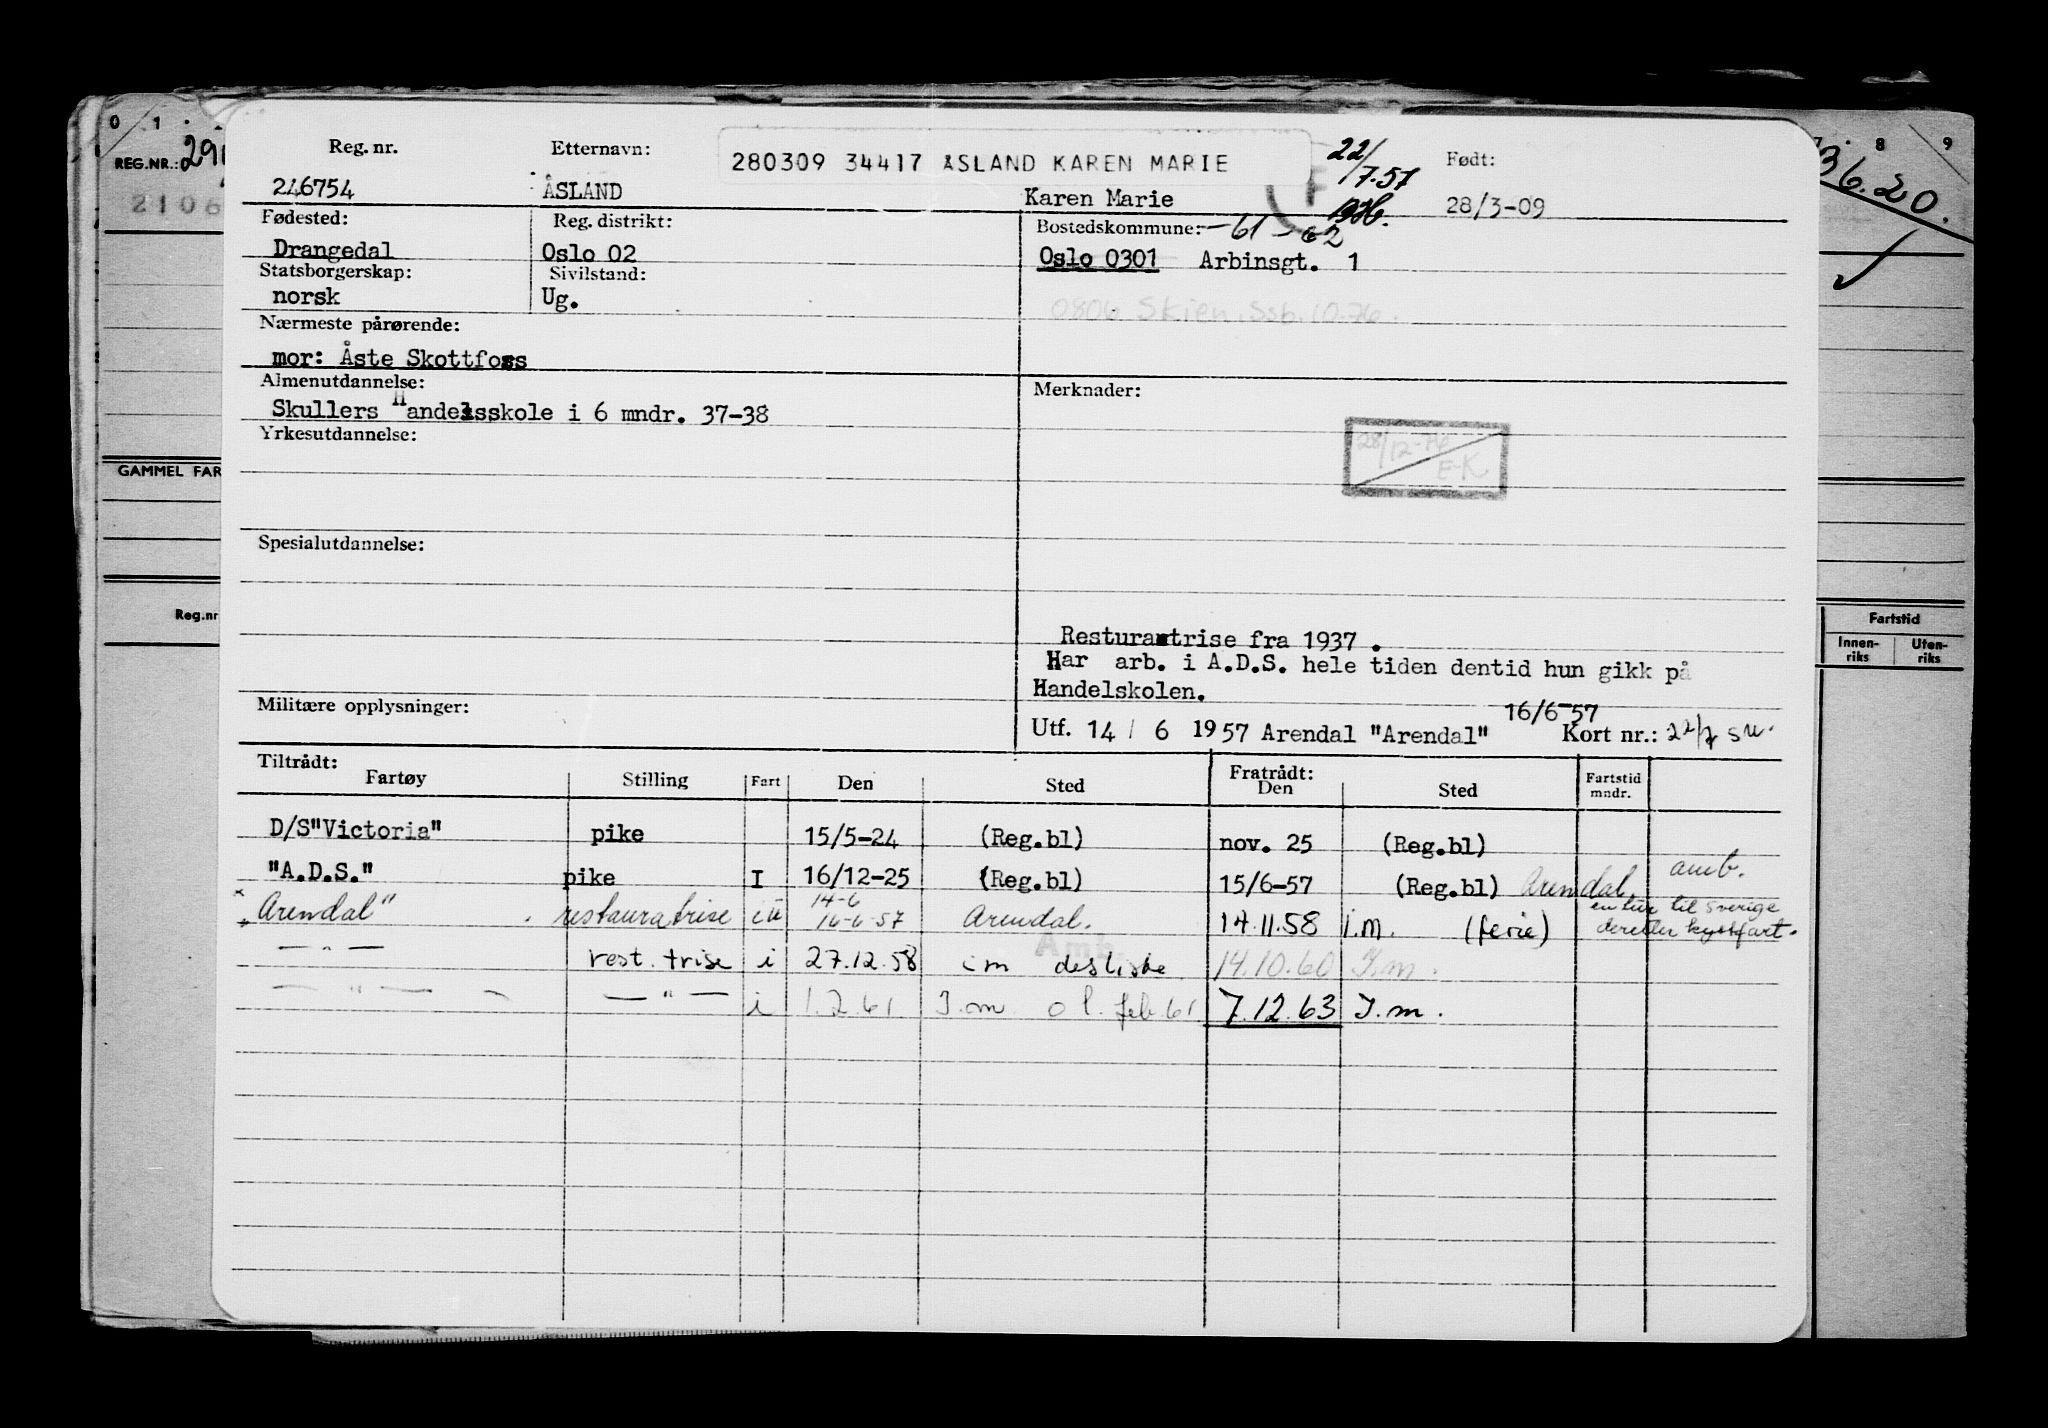 0 1
REG.NR.: 29
2106
GAMMEL FAR
Reg.nr
Reg. nr.
246754
Etternavn:
ÅSLAND
280309 34417 ÅSLAND KAREN MARIE
Karen Marie
22/7.57
Født:
28/3-09
Fødested:
Drangedal
Reg. distrikt:
Oslo 02
Bostedskommune: -61-62
Oslo 0301 Arbinsgt. 1
Statsborgerskap:
norsk
Sivilstand:
Ug.
0806 Skien. Ssb. 10.76.
Nærmeste pårørende:
mor: Åste Skottfoss
Almenutdannelse:
Skullers Handelsskole i 6 mndr. 37-38
Yrkesutdannelse:
Spesialutdannelse:
Militære opplysninger:
Merknader:
28/12-76
E-K
Resturantrise fra 1937 .
Har arb. i A.D.S. hele tiden dentid hun gikk på
Handelskolen.
16/6-57
Utf. 14 / 6 1957 Arendal "Arendal" Kort nr.: 22/7 su.
Tiltrådt: Fratrådt:
Fartøy Stilling Fart Den Sted Den Sted Fartstid mndr.
D/S"Victoria" pike 15/5-24 (Reg.bl) nov. 25 (Reg.bl)
"A.D.S." pike I 16/12-25 (Reg.bl) 15/6-57 (Reg.bl) Arendal. amb.
14-6
"Arendal" restauratrise iu 16-6-57 Arendal. 14.11.58 i.m. (ferie) en tur til sverige
deretter kystfart.
— " — rest. trise i 27.12.58 im desliste 14.10.60 I.m.
Amb
— " — — " — i 1.2.61. I.m o l. feb 61 7.12.63 I.m.
8 9
36.20.
Fartstid
Innen-riks Uten-riks